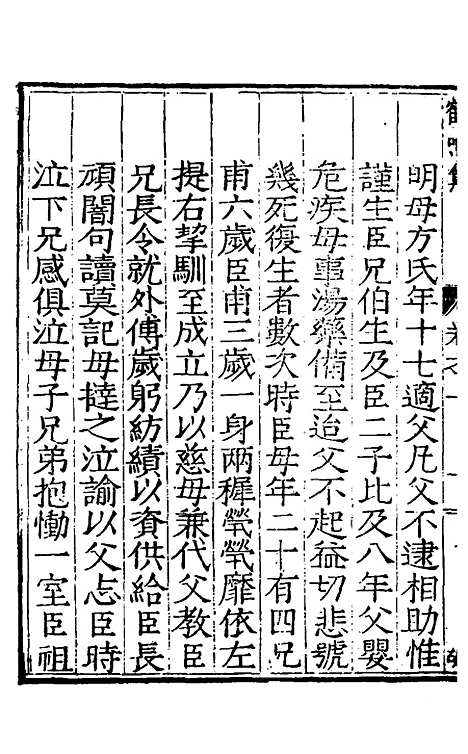 明母方氏年十七適父凡父不逮相助惟
謹生臣兄伯生及臣二子比及八年父嬰
危疾母事湯藥備至迨父不起益切悲號
幾死復生者數次時臣母年二十有四兄
甫六歲臣甫三歲一身兩穉煢煢靡依左
提右挈馴至成立乃以慈母兼代父教臣
兄長令就外傅歲躬紡績以資供給臣長
頑闇句讀莫記母撻之泣諭以父志臣時
泣下兄感俱泣母子兄弟抱慟一室臣祖